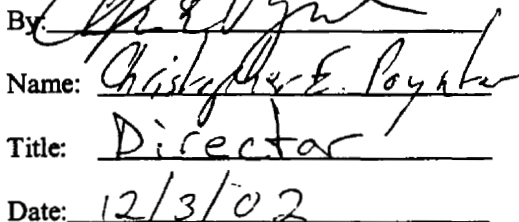 By:
Name: Christopher E. Poynter
Title: Director
Date: 12/3/02